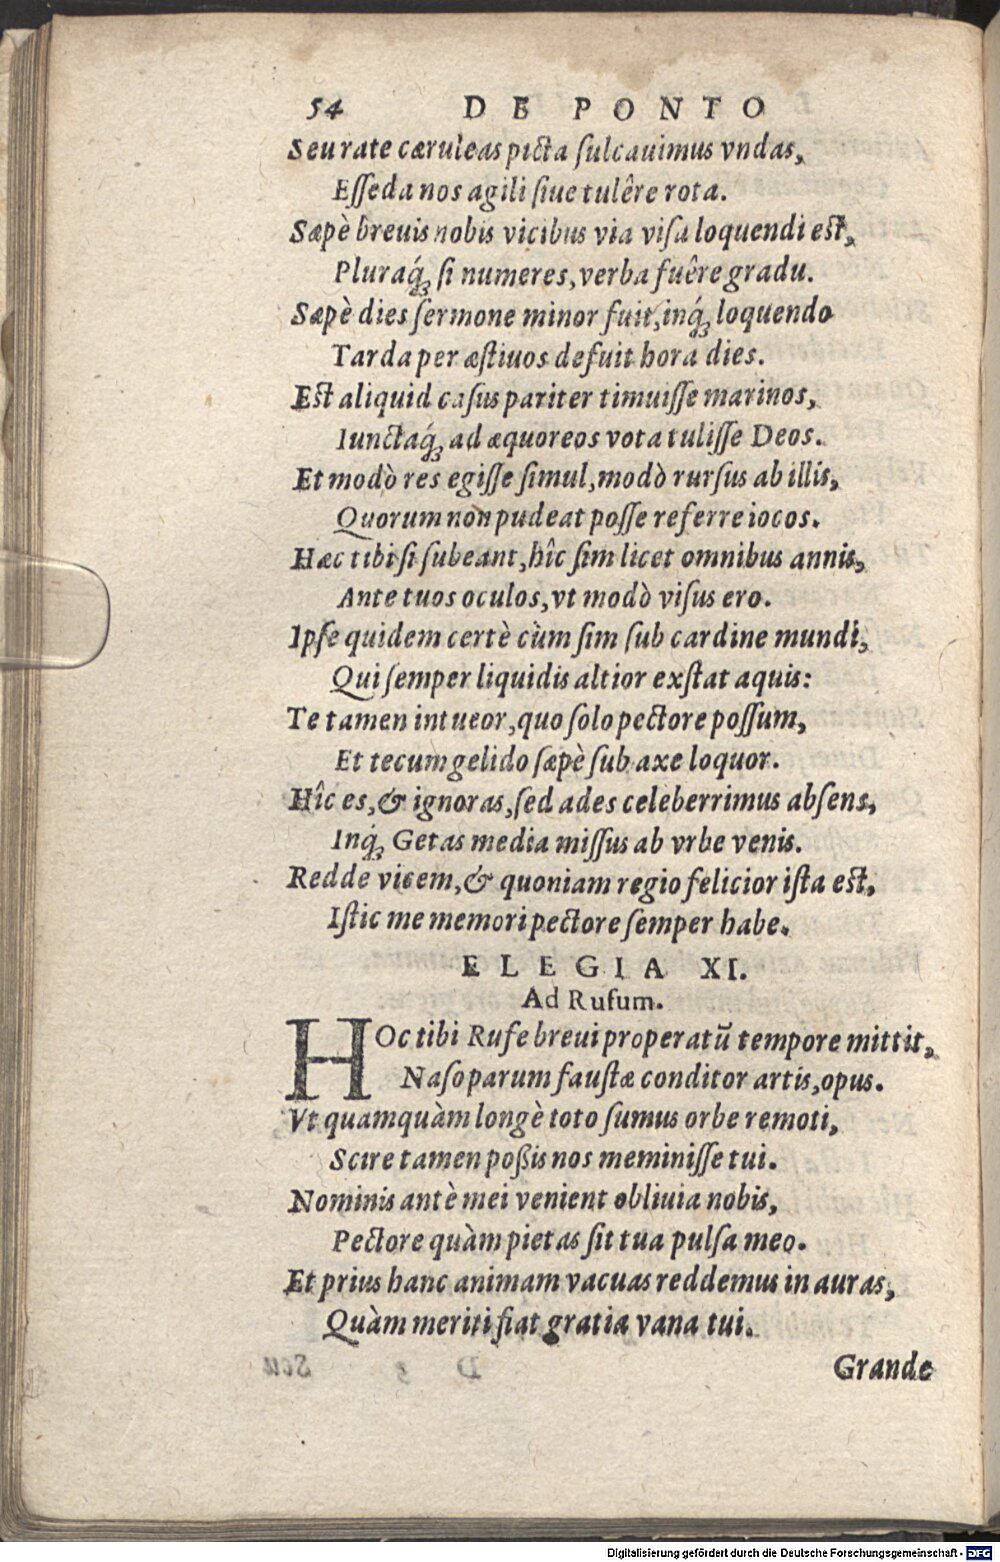 54 DE PONTO
Seu rate cæruleas picta ſulcauimus vndas,
Eſſeda nos agili ſiue tulêre rota.
Sæpè breuis nobis vicibus via viſa loquendi est,
Pluraq́; ſi numeres, verba fuêre gradu.
Sæpè dies ſermone minor fuit, inq́; loquendo
Tarda per æſtiuos defuit hora dies.
Est aliquid caſus pariter timuiſſe marinos,
Iunctaq́; ad æquoreos vota tuliſſe Deos.
Et modò res egiſſe ſimul, modò rurſus ab illis,
Quorum non pudeat poſſe referre iocos.
Hæc tibi ſi ſubeant, hîc ſim licet omnibus annis,
Ante tuos oculos, vt modò viſus ero.
Ipſe quidem certè cùm ſim ſub cardine mundi,
Qui ſemper liquidis altior exſtat aquis:
Te tamen intueor, quo ſolo pectore poſſum,
Et tecum gelido ſæpè ſub axe loquor.
Hîc es, & ignoras, ſed ades celeberrimus abſens,
Inq́; Getas media miſſus ab vrbe venis.
Redde vicem, & quoniam regio felicior iſta est,
Iſtic me memori pectore ſemper habe.
ELEGIA XI.
Ad Rufum.
HOc tibi Rufe breui properatū tempore mittit,
Naſo parum fauſtæ conditor artis, opus.
Vt quamquàm longè toto ſumus orbe remoti,
Scire tamen poßis nos meminiſſe tui.
Nominis antè mei venient obliuia nobis,
Pectore quàm pietas ſit tua pulſa meo.
Et prius hanc animam vacuas reddemus in auras,
Quàm meriti fiat gratia vana tui.
Grande
Digitalisierung gefördert durch die Deutsche Forschungsgemeinschaft - DFG